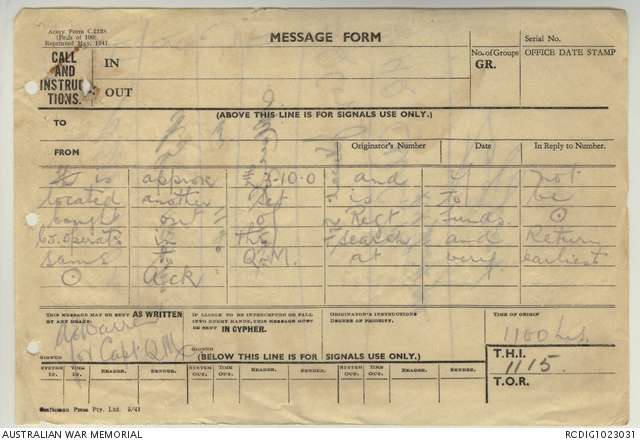 Army Form C.2128
(Pads of 100)
Reprinted May, 1941.
MESSAGE FORM
Serial No.
CALL AND INSTRUCTIONS.
IN
OUT
No. of Groups
GR.
OFFICE DATE STAMP
(ABOVE THIS LINE IS FOR SIGNALS USE ONLY.)
TO
FROM
Originator's Number
Date
In Reply to Number.
is approx £3-10-0 and if not
located another set is to be
bought out of Regt funds. ⊙
Co.operate in the search and Return
same to Q.M. at very earliest
⊙ Ack
THIS MESSAGE MAY BE SENT AS WRITTEN
BY ANY MEANS.
IF LIABLE TO BE INTERCEPTED OR FALL
INTO ENEMY HANDS, THIS MESSAGE MUST
BE SENT IN CIPHER.
ORIGINATOR'S INSTRUCTIONS
DEGREE OF PRIORITY.
TIME OF ORIGIN
1100 hrs.
for Capt. QM
SIGNED
SIGNED
(BELOW THIS LINE IS FOR SIGNALS USE ONLY.)
T.H.I. 1115.
SYSTEM IN. TIME IN. READER. SENDER. SYSTEM OUT. TIME OUT. READER. SENDER. SYSTEM OUT. TIME OUT. READER. SENDER.
T.O.R.
Press Pty. Ltd. 5/41
AUSTRALIAN WAR MEMORIAL
RCDIG1023031